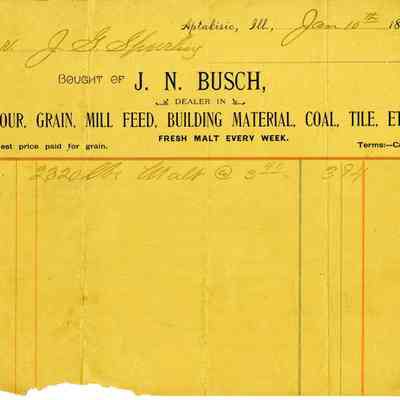 Aptakisic, Ill., Jan 10th 18
J G
BOUGHT OF J. N. BUSCH,
DEALER IN
OUR, GRAIN, MILL FEED, BUILDING MATERIAL, COAL, TILE, ET
FRESH MALT EVERY WEEK.
est price paid for grain. Terms:—Ca
2320 lbs Malt @ 3 40 394